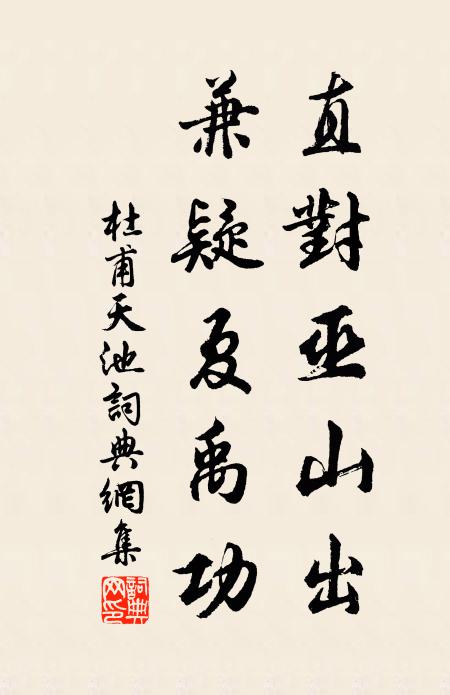 直對巫山出
兼疑夏禹功
杜甫天池詞典網集
詞典網印